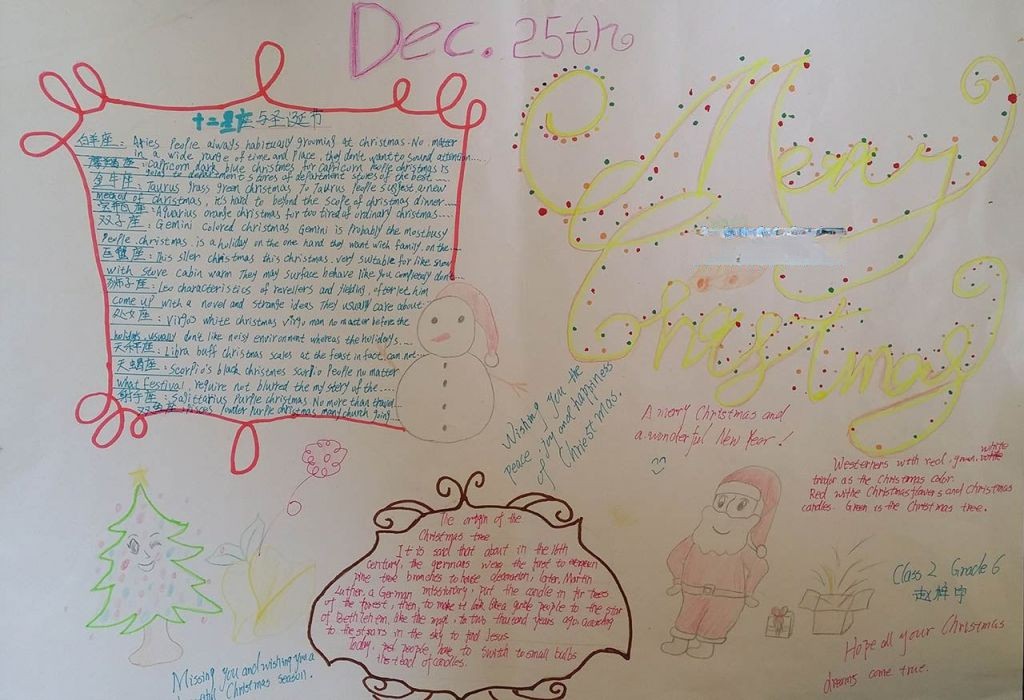 Dec. 25th
Merry
Christmas
十二星座与圣诞节
白羊座: Aries People always habitually grooming at christmas. No matter
in a wide range of time and place, they don't want to sound attention......
Capricorn dark blue christmas for capricorn people christmas is
department stores of the best......
金牛座: Taurus grass green christmas To Taurus people suggest a new
method of christmas, it's hard to beyond the scope of christmas dinner......
水瓶座: Aquarius orange christmas for too tired of ordinary christmas......
双子座: Gemini colored christmas Gemini is probably the most busy
people, christmas is a holiday on the one hand they want with family, on the...
巨蟹座: This siler christmas this christmas very suitable for like snow
with stove cabin warm They may surface behave like you completely don't...
狮子座: Leo characteristics of revellers and yielding, after let him
come up with a novel and strange ideas They usually care about...
处女座: virgo white christmas virgo man no matter before the
holidays, usually don't like noisy environment whereas the holidays...
天秤座: Libra buff christmas scales at the feast in fact, can not...
天蝎座: Scorpio's black christmas scorpio people no matter
what festival, require not blurred the mystery of the...
射手座: Sagittarius Purple christmas No more than traved...
双鱼座: Pisces powder purple christmas many church going...
Wishing you the
peace, joy and happiness
of Chriestmas.
A merry Christmas and
a wonderful New Year!
Westerners with red, green, white
as the Christmas color
Red withe Christmas flowers and Christmas
candles. Green is the Christmas tree.
The origin of the
Christmas tree
It is said that about in the 16th
century, the germans were the first to
pine tree branches to house decoration, later, Martin
Luther, a German missionary, put the candle in fir trees
of the forest, then, to make it look like guide people to the star
of Bethlehem, like the magi, to two thousand years ago, according
to the stars in the sky to find Jesus
Today, people have to switch to small bulbs
instead of candles.
Class 2 Grade 6
赵梓宇
Hope all your Christmas
dreams come true.
Missing you and wishing you a
Christmas season.